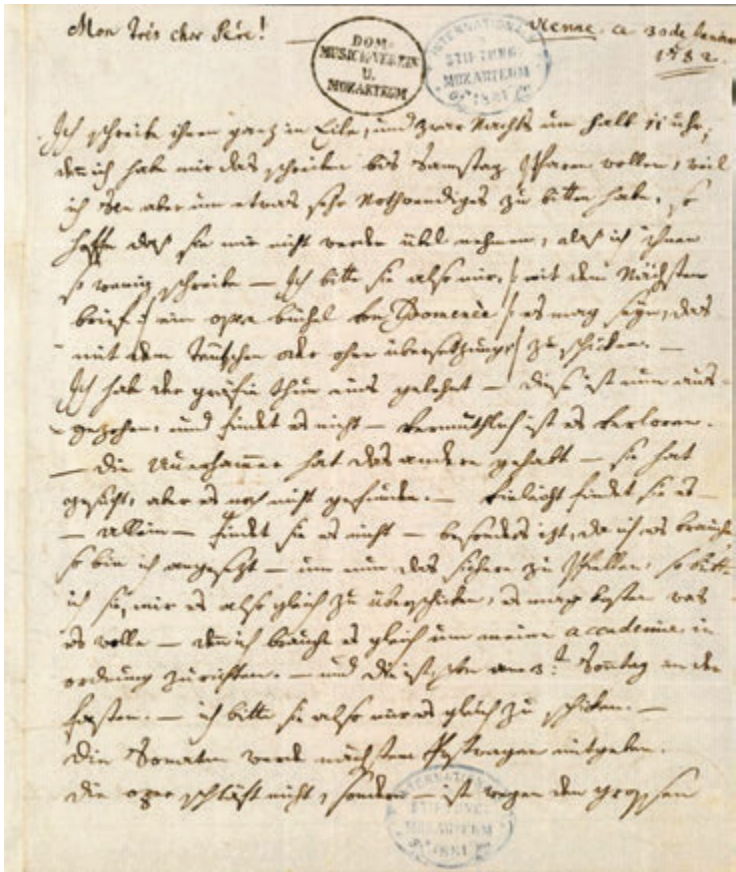 Mon très cher Pére!
DOM-
MUSICK-VEREIN
U.
MOZARTEUM
INTERNATIONALE
STIFTUNG:
MOZARTEUM
1881
Vienne. ce 30 de
1782.
Ich schreibe ihnen ganz in Eile, und zwar Nachts um halb 11 uhr,
denn ich habe mir das schreiben bis Samstag sparen wollen, weil
ich Sie aber um etwas sehr Nothwendiges zu bitten habe, so
hoffe daß sie mir nicht werden übel nehmen, daß ich ihnen
so wenig schreibe — Ich bitte sie also mir, mit dem Nächsten
brief ein opera büchel von Idomenèe es mag seyn, das
mit dem teutschen oder ohne übersetzung zu schicken. —
Ich hab der gräfin thun eins gelehnt — diese ist nun aus-
gezohen, und findet es nicht — vermuthlich ist es verloren.
— die Auerhammer hat das andere gehabt — sie hat
gesucht, aber es noch nicht gefunden. — vieleicht findet sie es —
— allein — findet sie es nicht — besonders izt, da ich es brauche
so bin ich angesezt — um nun das sichere zu spiellen, so bitte
ich sie, mir es also gleich zu überschicken, es mag kosten was
es wolle — denn ich brauche es gleich um meine accademie in
ordnung zu richten. — und die ist schon am 3:t Sontag in der
fasten. — ich bitte sie also mir es gleich zu schicken. —
die Sonaten werde nächsten Postwagen mitgeben.
die oper schläft nicht, sondern — ist wegen den grossen
INTERNATIONALE
STIFTUNG:
MOZARTEUM
1881